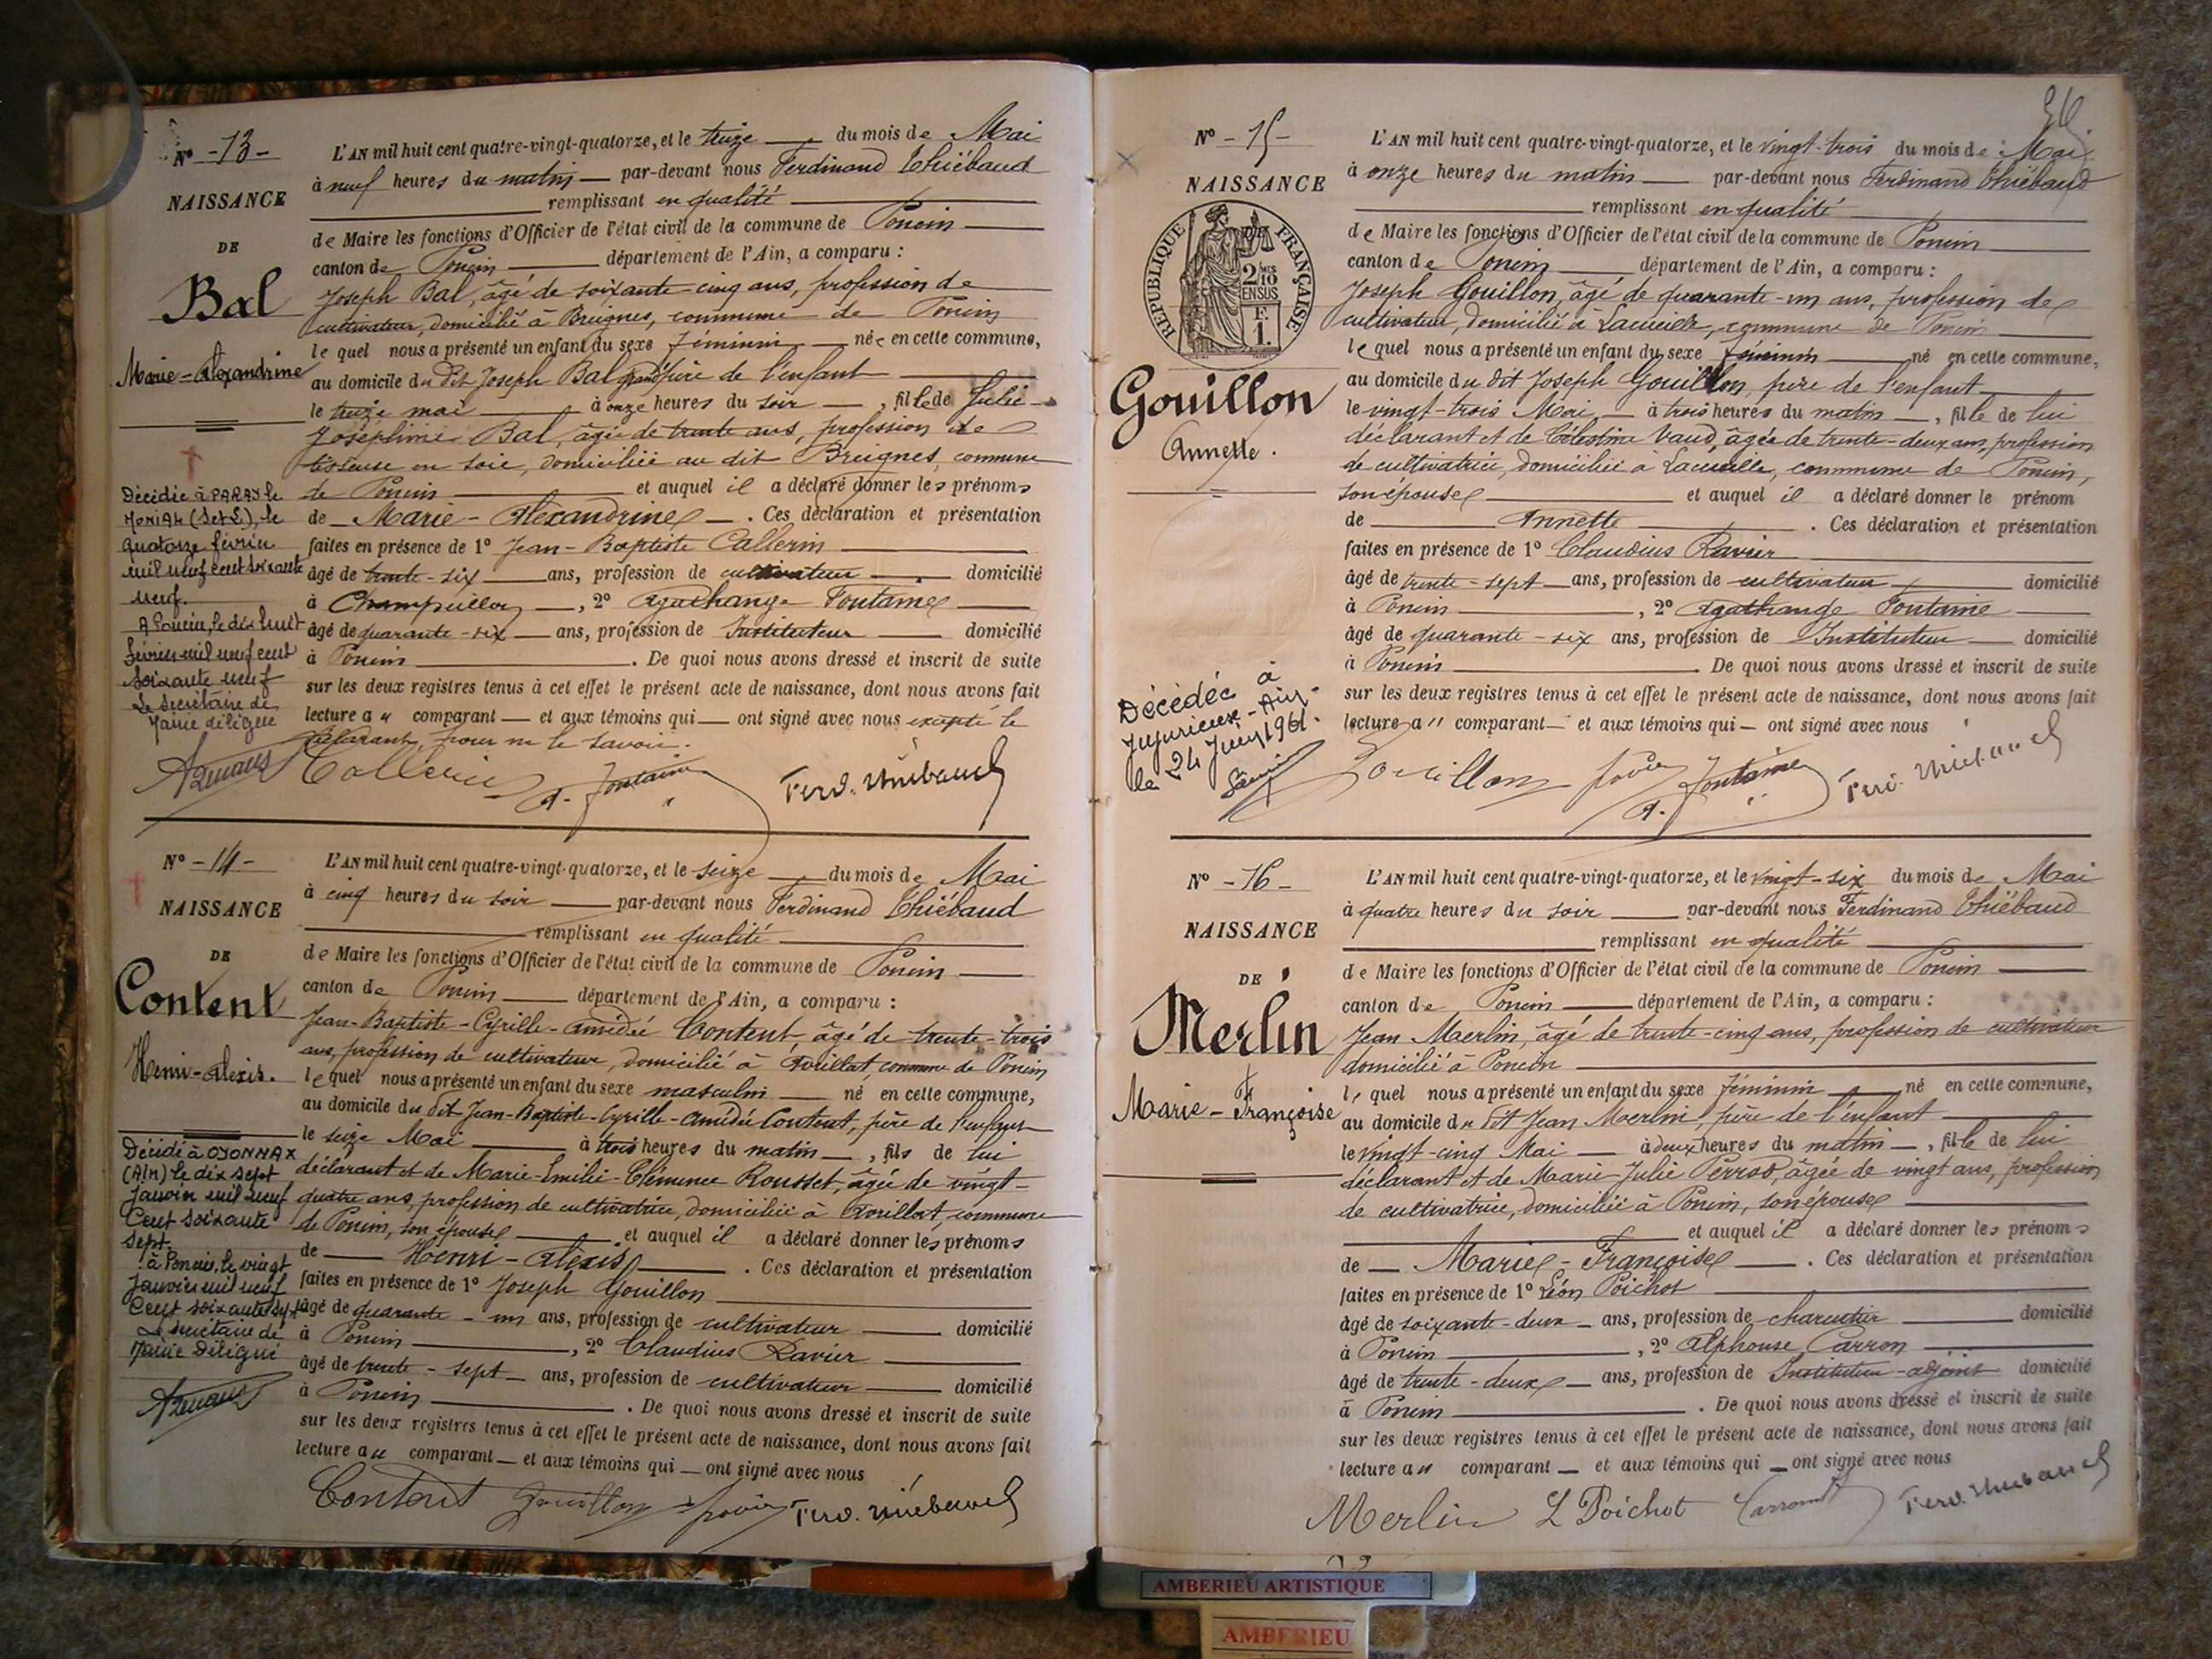 Nº -13-
NAISSANCE
DE
Bal
Marie-Alexandrine
Décédée à PARAY le
MONIAL (S et L), le
quatorze février
mil neuf cent soixante
neuf.
A Poncin, le dix huit
février mil neuf cent
soixante neuf
Le Secrétaire de
Mairie délégué
L'AN mil huit cent quatre-vingt-quatorze, et le treize du mois de Mai
à neuf heures du matin par-devant nous Ferdinand Thiébaud
remplissant en qualité
de Maire les fonctions d'Officier de l'état civil de la commune de Poncin
canton de Poncin département de l'Ain, a comparu :
Joseph Bal, âgé de soixante-cinq ans, profession de
cultivateur, domicilié à Breignes, commune de Poncin
lequel nous a présenté un enfant du sexe féminin née en cette commune,
au domicile du dit Joseph Bal grand père de l'enfant
le treize mai à onze heures du soir, fille de Julie-
Joséphine Bal, âgée de trente ans, profession de
tisseuse en soie, domiciliée au dit Breignes, commune
de Poncin et auquel il a déclaré donner les prénoms
de Marie-Alexandrine. Ces déclaration et présentation
faites en présence de 1º Jean-Baptiste Callerin
âgé de trente-six ans, profession de cultivateur domicilié
à, 2º Agathange Fontaine
âgé de quarante-six ans, profession de Instituteur domicilié
à Poncin. De quoi nous avons dressé et inscrit de suite
sur les deux registres tenus à cet effet le présent acte de naissance, dont nous avons fait
lecture au comparant et aux témoins qui ont signé avec nous excepté le
déclarant, pour ne le savoir.
Callerin A. Fontaine Ferd. Thiébaud
Nº -14-
NAISSANCE
DE
Content
Henri-Alexis.
Décédé à OYONNAX
(AIN) le dix sept
Janvier mil neuf
Cent soixante
sept.
à Poncin, le vingt
Janvier mil neuf
Cent soixante sept
Le secrétaire de
Mairie Délégué
L'AN mil huit cent quatre-vingt-quatorze, et le seize du mois de Mai
à cinq heures du soir par-devant nous Ferdinand Thiébaud
remplissant en qualité
de Maire les fonctions d'Officier de l'état civil de la commune de Poncin
canton de Poncin département de l'Ain, a comparu :
Jean-Baptiste-Cyrille-Amédée Content, âgé de trente-trois
ans, profession de cultivateur, domicilié à Avrillat, commune de Poncin
lequel nous a présenté un enfant du sexe masculin né en cette commune,
au domicile du dit Jean-Baptiste-Cyrille-Amédée Content, père de l'enfant
le seize Mai à trois heures du matin, fils de lui
déclarant et de Marie-Emilie-Clémence Rousset, âgée de vingt-
quatre ans, profession de cultivatrice, domiciliée à Avrillat, commune
de Poncin, son épouse et auquel il a déclaré donner les prénoms
de Henri-Alexis. Ces déclaration et présentation
faites en présence de 1º Joseph Gouillon
âgé de quarante-un ans, profession de cultivateur domicilié
à Poncin, 2º Claudius Ravier
âgé de trente-sept ans, profession de cultivateur domicilié
à Poncin. De quoi nous avons dressé et inscrit de suite
sur les deux registres tenus à cet effet le présent acte de naissance, dont nous avons fait
lecture au comparant et aux témoins qui ont signé avec nous
Content Gouillon Ferd. Thiébaud
Nº -15-
NAISSANCE
RÉPUBLIQUE FRANÇAISE
2 MES
10
EN SUS
F.
1.
Gouillon
Annette.
Décédée à
Jujurieux-Ain-
le 24 Juin 1961.
L'AN mil huit cent quatre-vingt-quatorze, et le vingt-trois du mois de Mai
à onze heures du matin par-devant nous Ferdinand Thiébaud
remplissant en qualité
de Maire les fonctions d'Officier de l'état civil de la commune de Poncin
canton de Poncin département de l'Ain, a comparu :
Joseph Gouillon, âgé de quarante-un ans, profession de
cultivateur, domicilié à Lacueille, commune de Poncin
lequel nous a présenté un enfant du sexe féminin né en cette commune,
au domicile du dit Joseph Gouillon, père de l'enfant
le vingt-trois Mai à trois heures du matin, fille de lui
déclarant et de Célestine Vaud, âgée de trente-deux ans, profession
de cultivatrice, domiciliée à Lacueille, commune de Poncin,
son épouse et auquel il a déclaré donner le prénom
de Annette. Ces déclaration et présentation
faites en présence de 1º Claudius Ravier
âgé de trente-sept ans, profession de cultivateur domicilié
à Poncin, 2º Agathange Fontaine
âgé de quarante-six ans, profession de Instituteur domicilié
à Poncin. De quoi nous avons dressé et inscrit de suite
sur les deux registres tenus à cet effet le présent acte de naissance, dont nous avons fait
lecture au comparant et aux témoins qui ont signé avec nous
Gouillon A. Fontaine Ferd. Thiébaud
Nº -16-
NAISSANCE
DE
Merlin
Marie-Françoise
L'AN mil huit cent quatre-vingt-quatorze, et le vingt-six du mois de Mai
à quatre heures du soir par-devant nous Ferdinand Thiébaud
remplissant en qualité
de Maire les fonctions d'Officier de l'état civil de la commune de Poncin
canton de Poncin département de l'Ain, a comparu :
Jean Merlin, âgé de trente-cinq ans, profession de cultivateur
domicilié à Poncin
lequel nous a présenté un enfant du sexe féminin né en cette commune,
au domicile du dit Jean Merlin, père de l'enfant
le vingt-cinq Mai à deux heures du matin, fille de lui
déclarant et de Marie-Julie Perrod, âgée de vingt ans, profession
de cultivatrice, domiciliée à Poncin, son épouse
et auquel il a déclaré donner les prénoms
de Marie-Françoise. Ces déclaration et présentation
faites en présence de 1º Léon Poichot
âgé de soixante-deux ans, profession de charcutier domicilié
à Poncin, 2º Alphonse Carron
âgé de trente-deux ans, profession de Instituteur-adjoint domicilié
à Poncin. De quoi nous avons dressé et inscrit de suite
sur les deux registres tenus à cet effet le présent acte de naissance, dont nous avons fait
lecture au comparant et aux témoins qui ont signé avec nous
Merlin L Poichot Carron Ferd. Thiébaud
AMBERIEU ARTISTIQUE
AMBERIEU